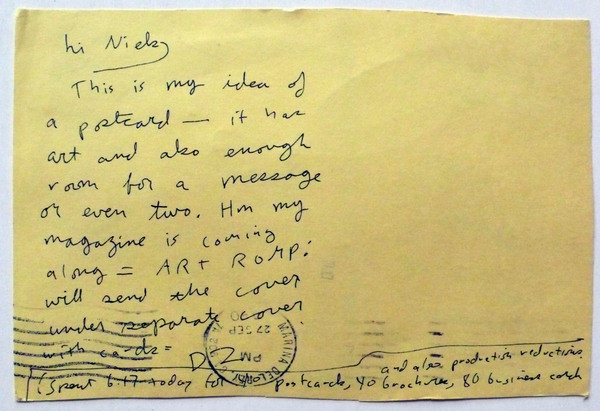 hi Niels
This is my idea of
a postcard — it has
art and also enough
room for a message
or even two. Hm my
magazine is coming
along = ART ROMP.
will send the cover
under separate cover
with cards =
DZ
MARINA DEL
PM
27 SEP
and also production reductions,
I spent 6.17 today for postcards, 40 brochures, 80 business cards